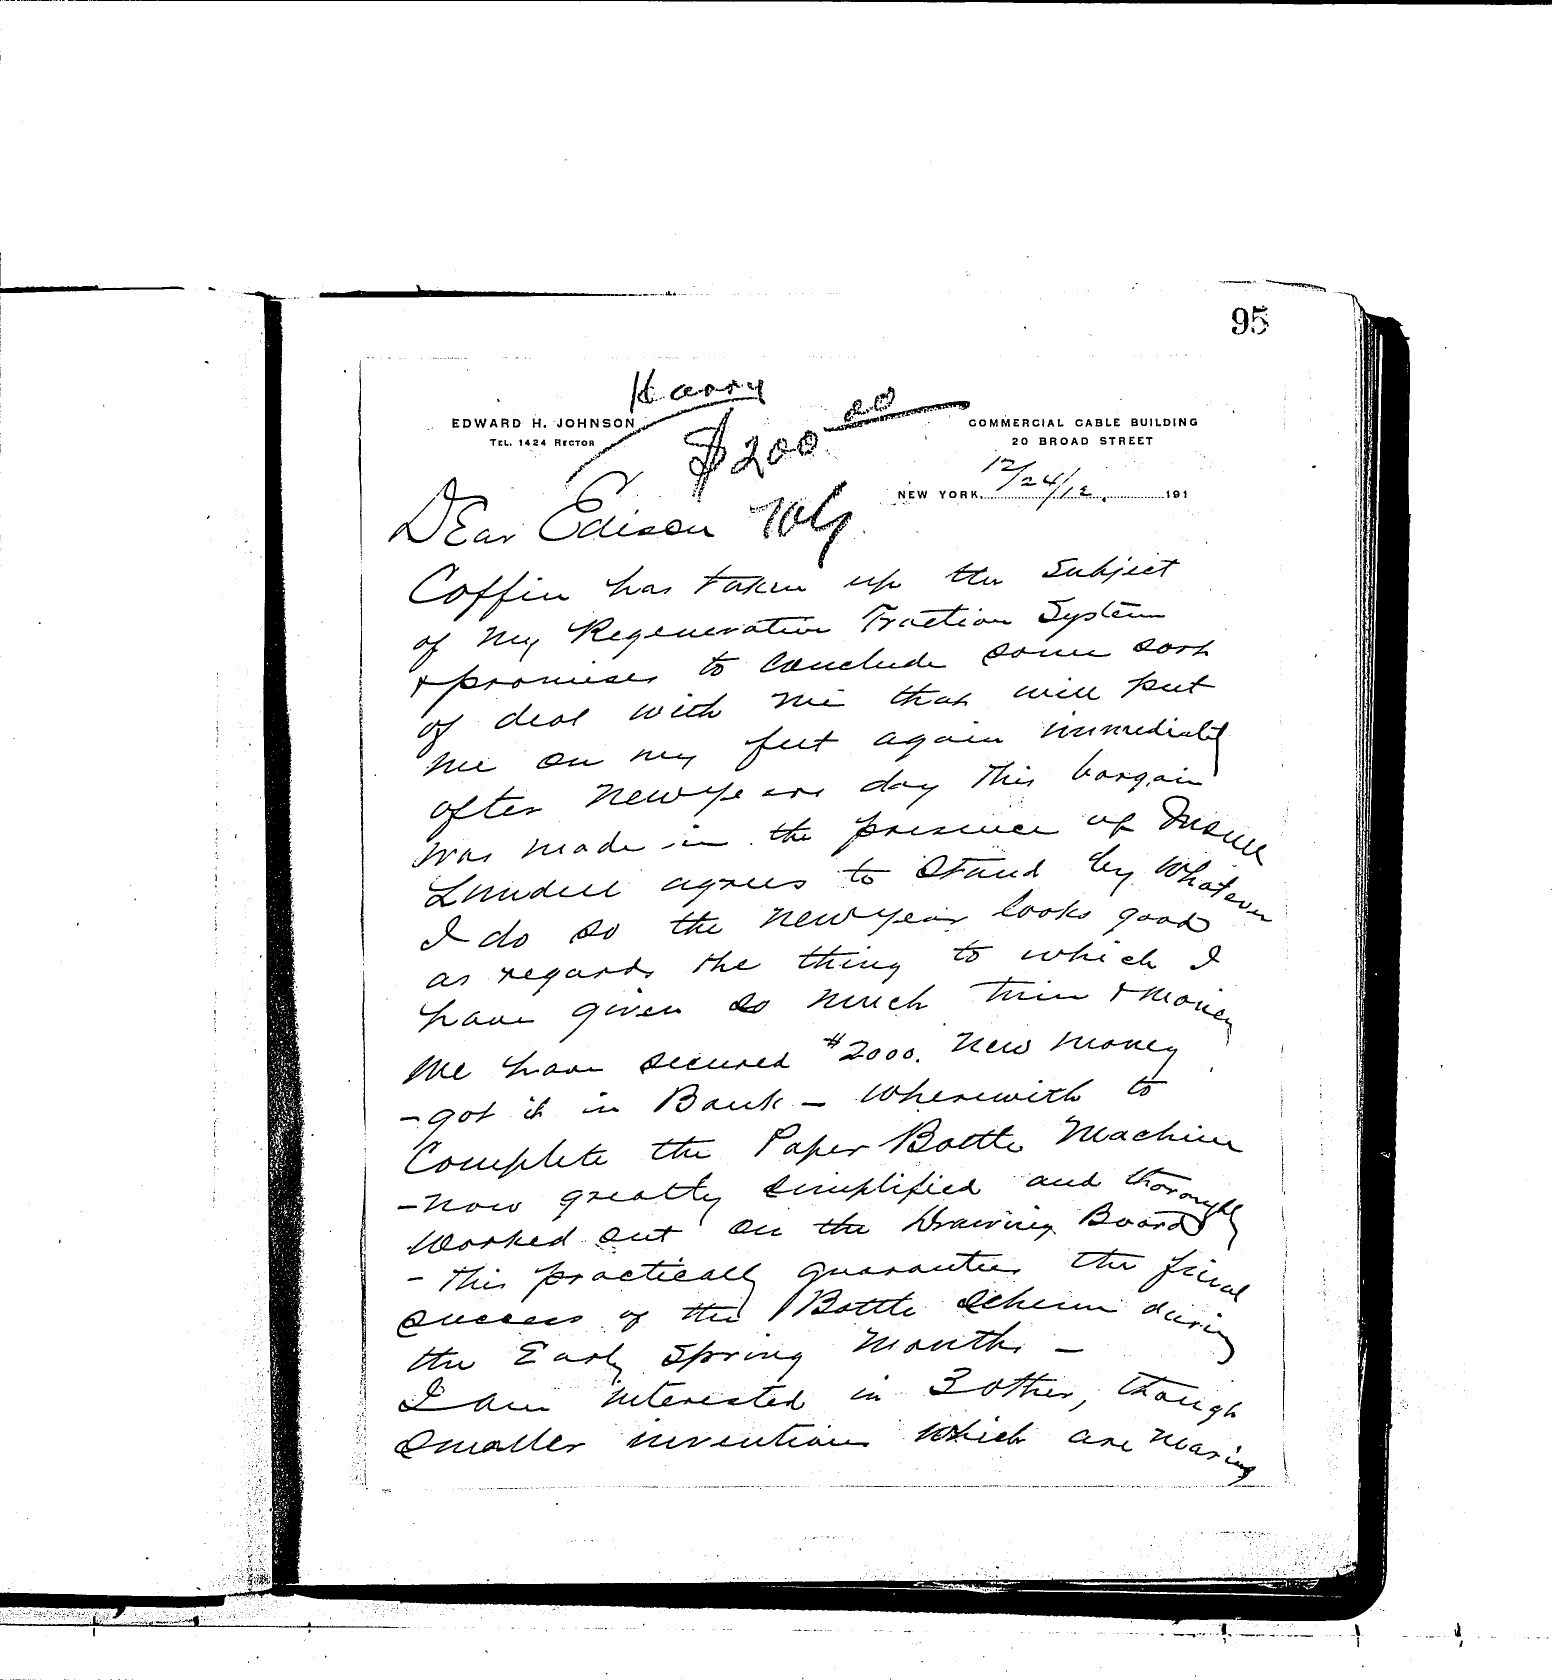 95
Harry
EDWARD H. JOHNSON
TEL. 1424 RECTOR
$200 00
COMMERCIAL CABLE BUILDING
20 BROAD STREET
NEW YORK, 12/24/12. 191
Dear Edison
Coffin has taken up the subject
of my Regenerative Traction System
& promises to conclude some sort
of deal with me that will put
me on my feet again immediately
after New years day This bargain
was made in the presence of Insull
Lundell agrees to stand by whatever
I do so the New year looks good
as regards the thing to which I
have given so much time & money
We have secured $2000. New money
- got it in Bank - wherewith to
Complete the Paper Bottle Machine
- now greatly simplified and thoroughly
worked out on the Drawing Board
- This practically guarantees the final
success of the Bottle Scheme during
the Early Spring Months -
I am interested in 3 other, though
smaller inventions which are